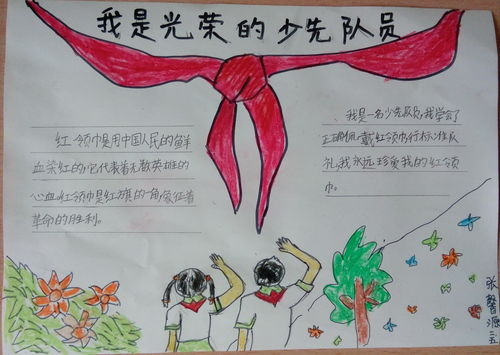 我是光荣的少先队员
红领巾是用中国人民的鲜
血染红的,它代表着无数英雄的
心血,红领巾是红旗的一角,象征着
革命的胜利。
我是一名少先队员,我学会了
正确佩戴红领巾,行标准队
礼,我永远珍爱我的红领
巾。
张馨源 二五